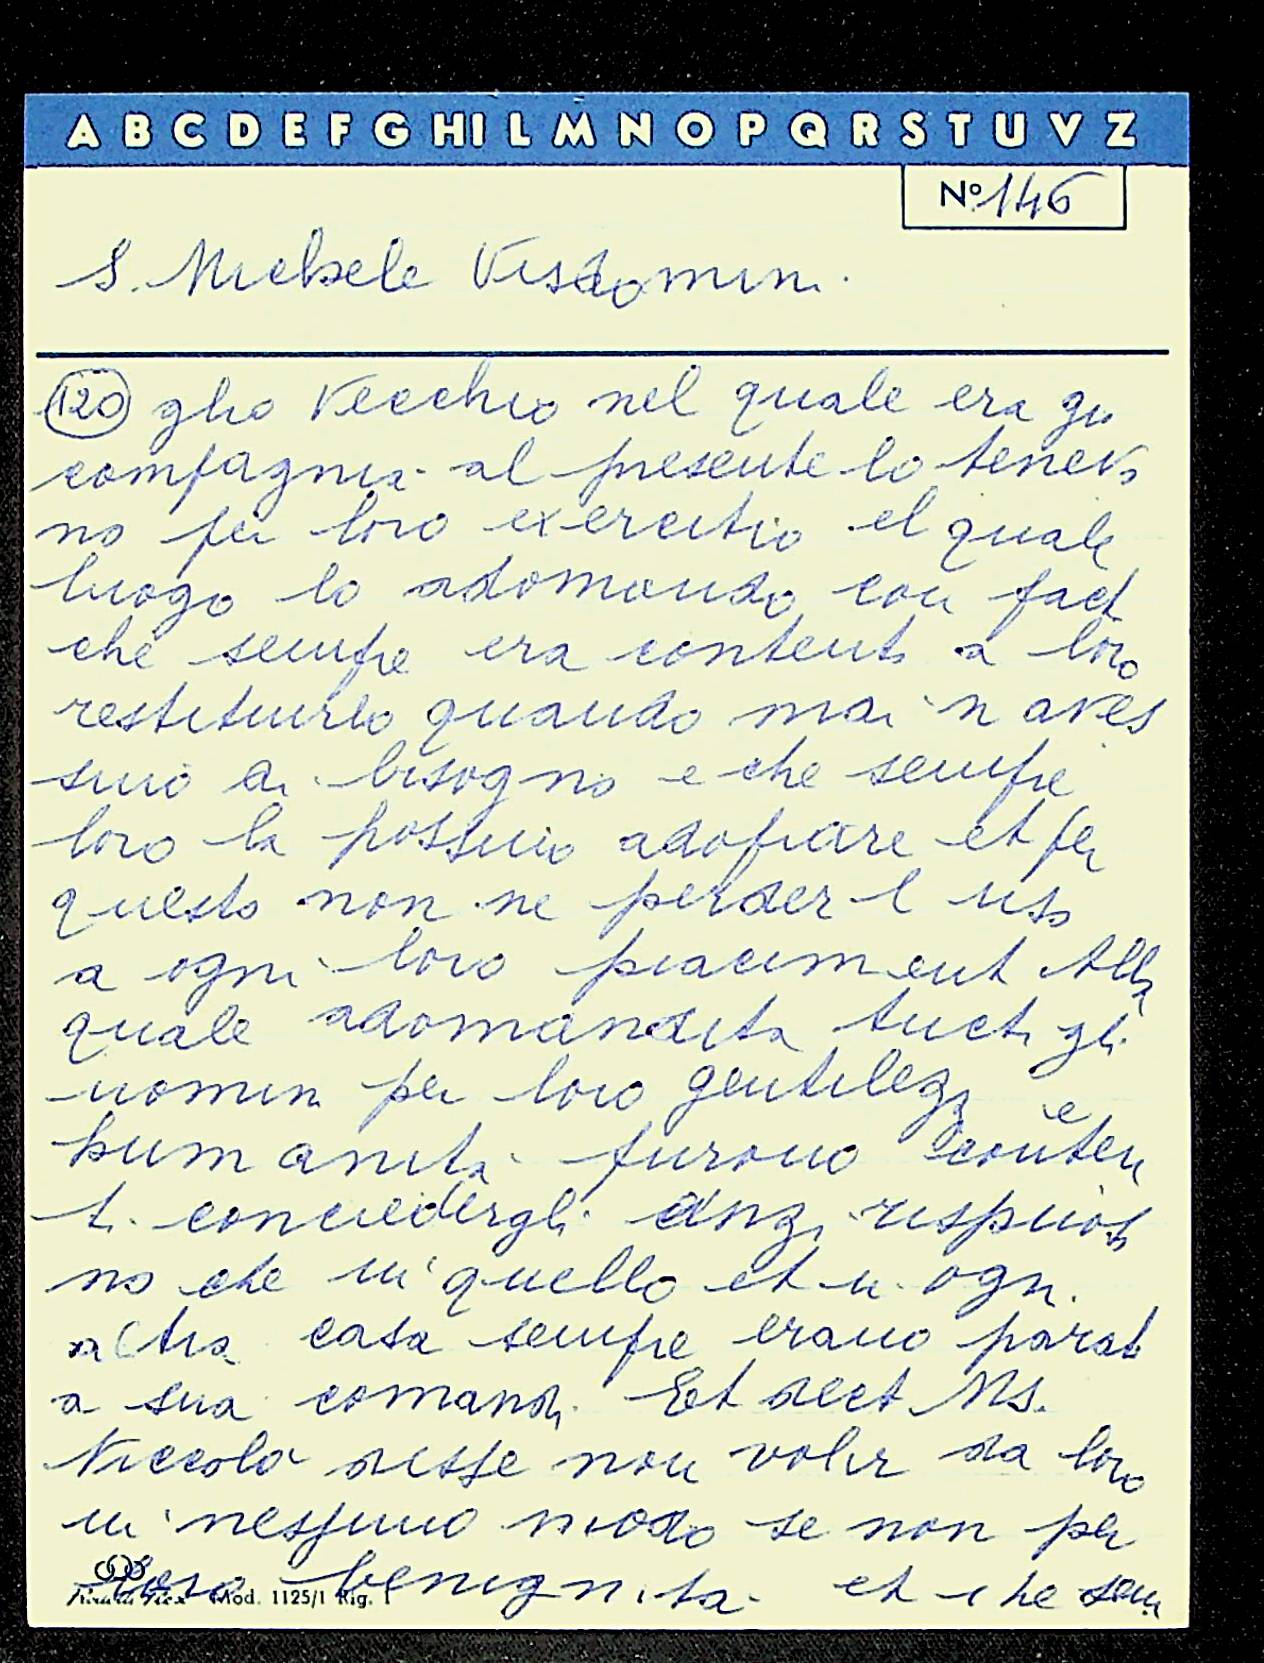 A B C D E F G H I L M N O P Q R S T U V Z
Nº 146
S. Michele Visdomini.
120 glio Vecchio nel quale era gu
compagnia al presente lo teneva
no per loro exercitio el quale
luogo lo adomando con pact
che sempre era contento a loro
restituirlo quando mai n aves
sino di bisogno e che sempre
loro la possino adoprare et per
questo non ne perder l uso
a ogni loro piaciment Alla
quale adomandita tucti gli
uomini per loro gentilezz e
humanità furono conten
ti concedergli anzi rispuoso
no che in quello et in ogni
altra casa sempre erano parati
a sua comandi. Et dect Ms.
Niccolò disse non voler da loro
in nessuno modo se non per
loro benignita et che sem
Mod. 1125/1 Rig. 1